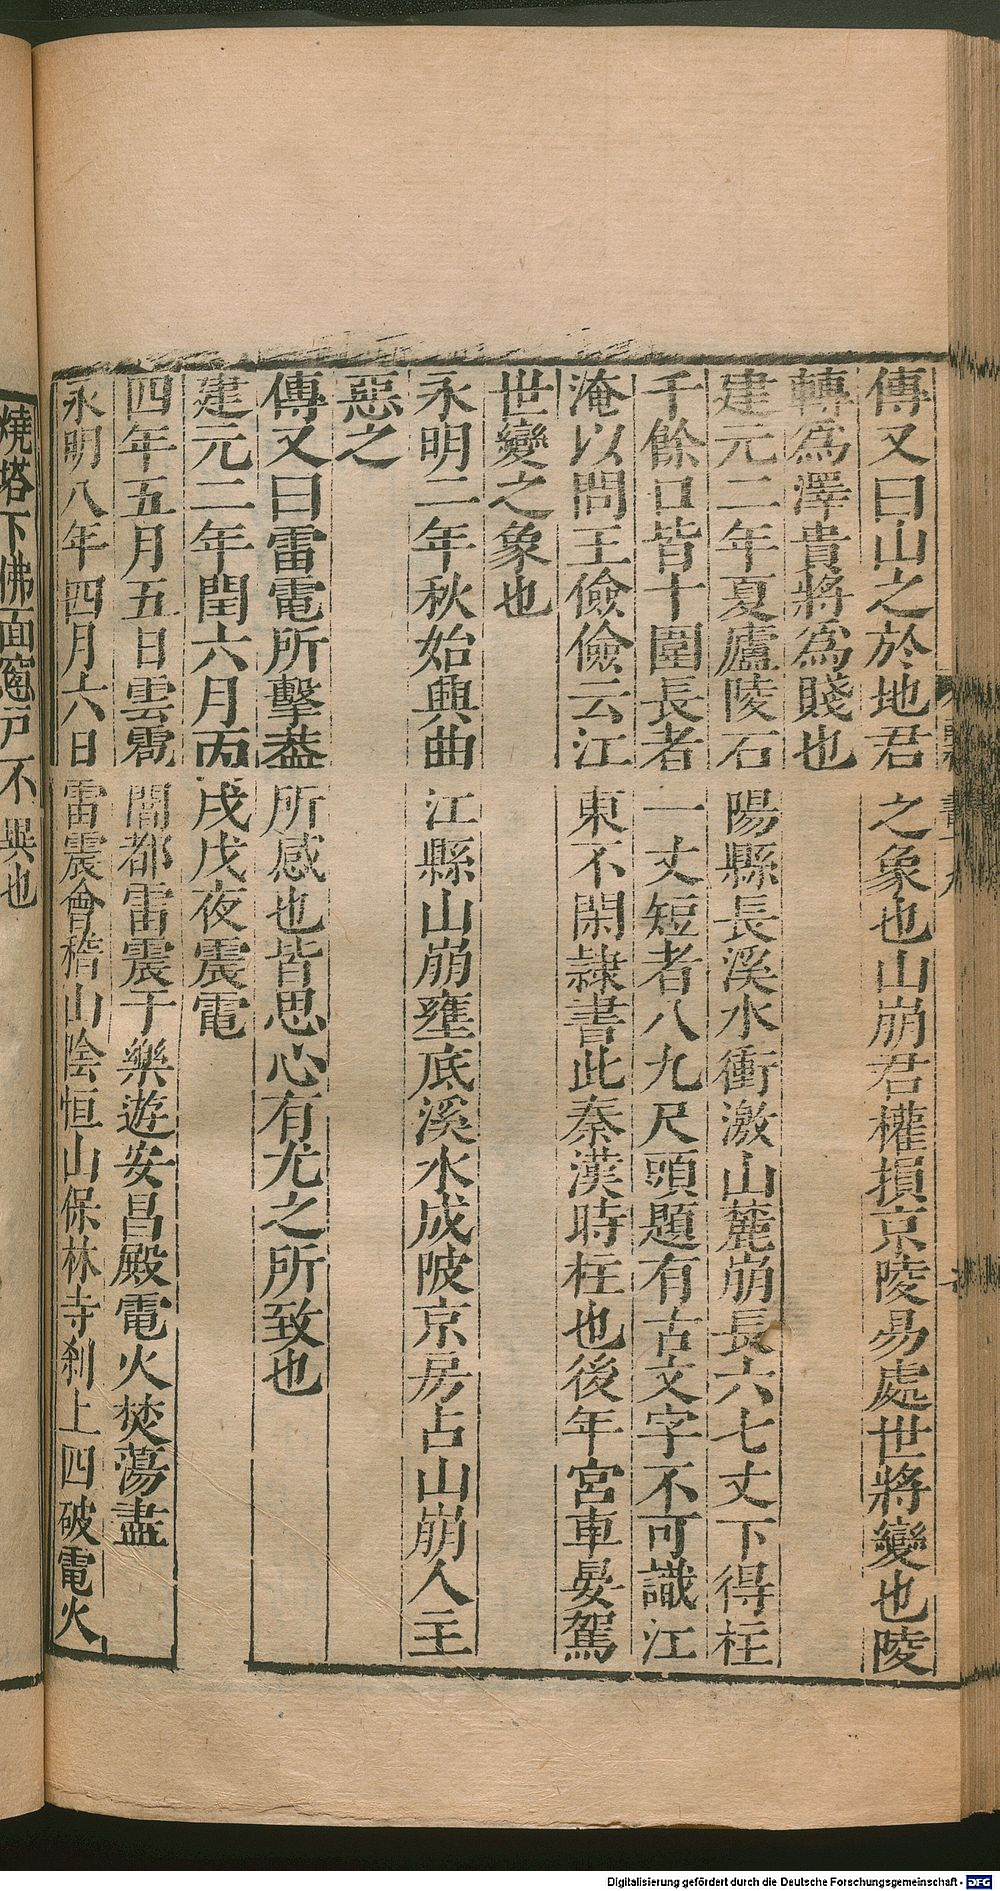 傳又曰山之於地君之象也山崩君權損京陵易處世將變也陵
轉爲澤貴將爲賤也
建元二年夏廬陵石陽縣長溪水衝激山麓崩長六七丈下得柱
千餘口皆十圍長者一丈短者八九尺頭題有古文字不可識江
淹以問王儉儉云江東不閑隷書此秦漢時柱也後年宮車晏駕
世變之象也
永明二年秋始興曲江縣山崩壅底溪水成陂京房占山崩人主
惡之
傳又曰雷電所擊葢所感也皆思心有尤之所致也
建元二年閏六月丙戌戊夜震電
四年五月五日雲雹闇都雷震于樂遊安昌殿電火焚蕩盡
永明八年四月六日雷震會稽山陰恒山保林寺刹上四破電火
燒塔下佛面窻戸不異也
Digitalisierung gefördert durch die Deutsche Forschungsgemeinschaft - DFG